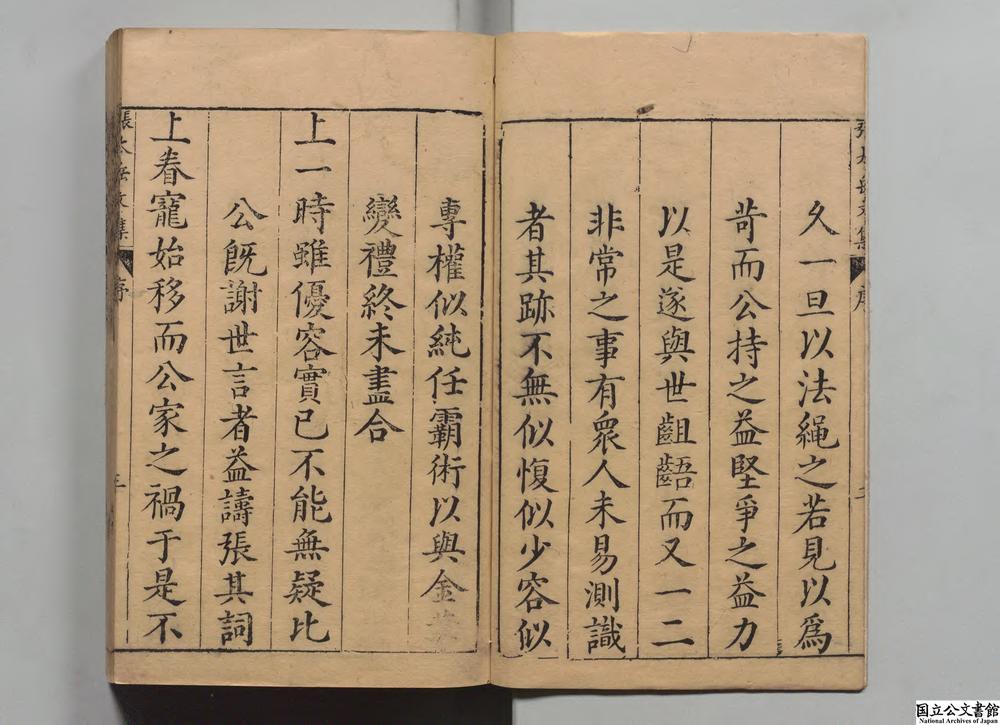 久一旦以法繩之若見以爲
苛而公持之益堅爭之益力
以是遂與世齟齬而又一二
非常之事有衆人未易測識
者其跡不無似愎似少容似
專權似純任霸術以與金革
變禮終未盡合
上一時雖優容實已不能無疑比
公旣謝世言者益譸張其詞
上眷寵始移而公家之禍于是不
張太岳文集
序
三
国立公文書館
National Archives of Japan